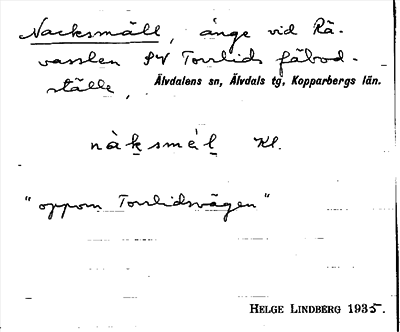 Nacksmäll, änge vid Rä-
vasslen SV Torrlids fäbod-
ställe,
Älvdalens sn, Älvdals tg, Kopparbergs län.
nàk̠smél̠ Kl.
"oppom Torrlidsvägen"
HELGE LINDBERG 1935.